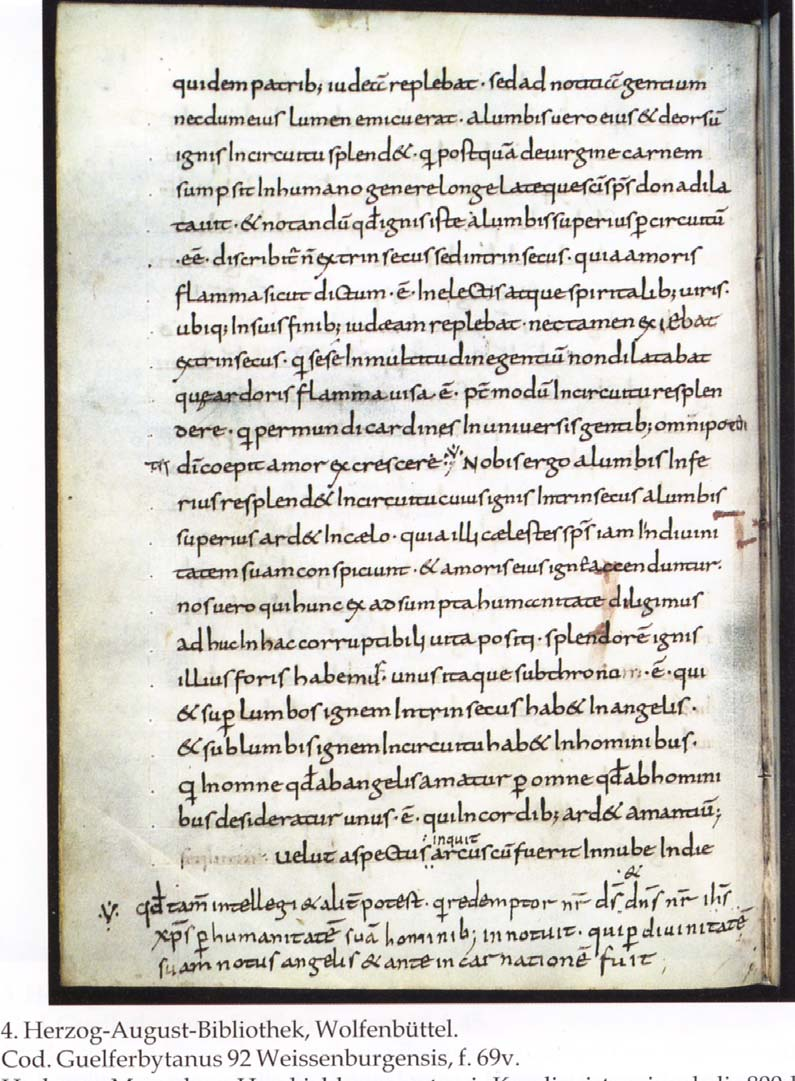 quidem patrib; iudeā replebat · sed ad notitiā gentium
necdum eius lumen emicuerat · alumbis uero eius & deorsū
ignis Incircuitu splend& · q̄ postquā deuirgine carnem
sumpsit Inhumano genere longe lateque sc̄i sp̄s dona dila
tauit · & notandū qđ ignis iste alumbis superius ꝑ circuitū
· eē · discribit̄ n̄ extrinsecus sed intrinsecus · quia amoris
flamma sicut dictum · ē · In electis atque spiritalib; uiris ·
ubiq; Insuis finib; iudæam replebat · nec tamen exiebat
extrinsecus · q̄ sese Inmultitudine gentiū non dilatabat
quę ardoris flamma uisa · ē · pc̄ modū Incircuitu resplen
dere · q̄ per mundi cardines In uniuersis gentib; omnipote
tis dī coepit amor excrescere · Nobis ergo alumbis Infe
rius resplend& Incircuitu cuius ignis Intrinsecus alumbis
superius ard& Incælo · quia illi cælestes sp̄s iam Indiuini
tatem suam conspiciunt · & amoris eius igne accenduntur ·
nos uero qui hunc ex adsumpta humanitate diligimus
ad huc In hac corruptibili uita positi · splendorē ignis
illius foris habemus · unus itaque sub throno · ē · qui
& suꝑ lumbos ignem Intrinsecus hab& In angelis ·
& sub lumbis ignem Incircuitu hab& In hominibus ·
q̄ In omne qđ ab angelis amatur ꝑ omne qđ ab homini
bus desideratur unus · ē · qui In cordib; ard& amantiū;
inquit
uelut aspectus arcus cū fuerit In nube In die
&
qđ tam̄ intellegi & alit̄ potest · q̄ redemptor nr̄ dś dn̄s nr̄ ih̄s
xp̄s ꝑ humanitatē suā hominib; innotuit · qui ꝑ diuinitatē
suam notus angelis & ante incarnationē fuit
4. Herzog-August-Bibliothek, Wolfenbüttel.
Cod. Guelferbytanus 92 Weissenburgensis, f. 69v.